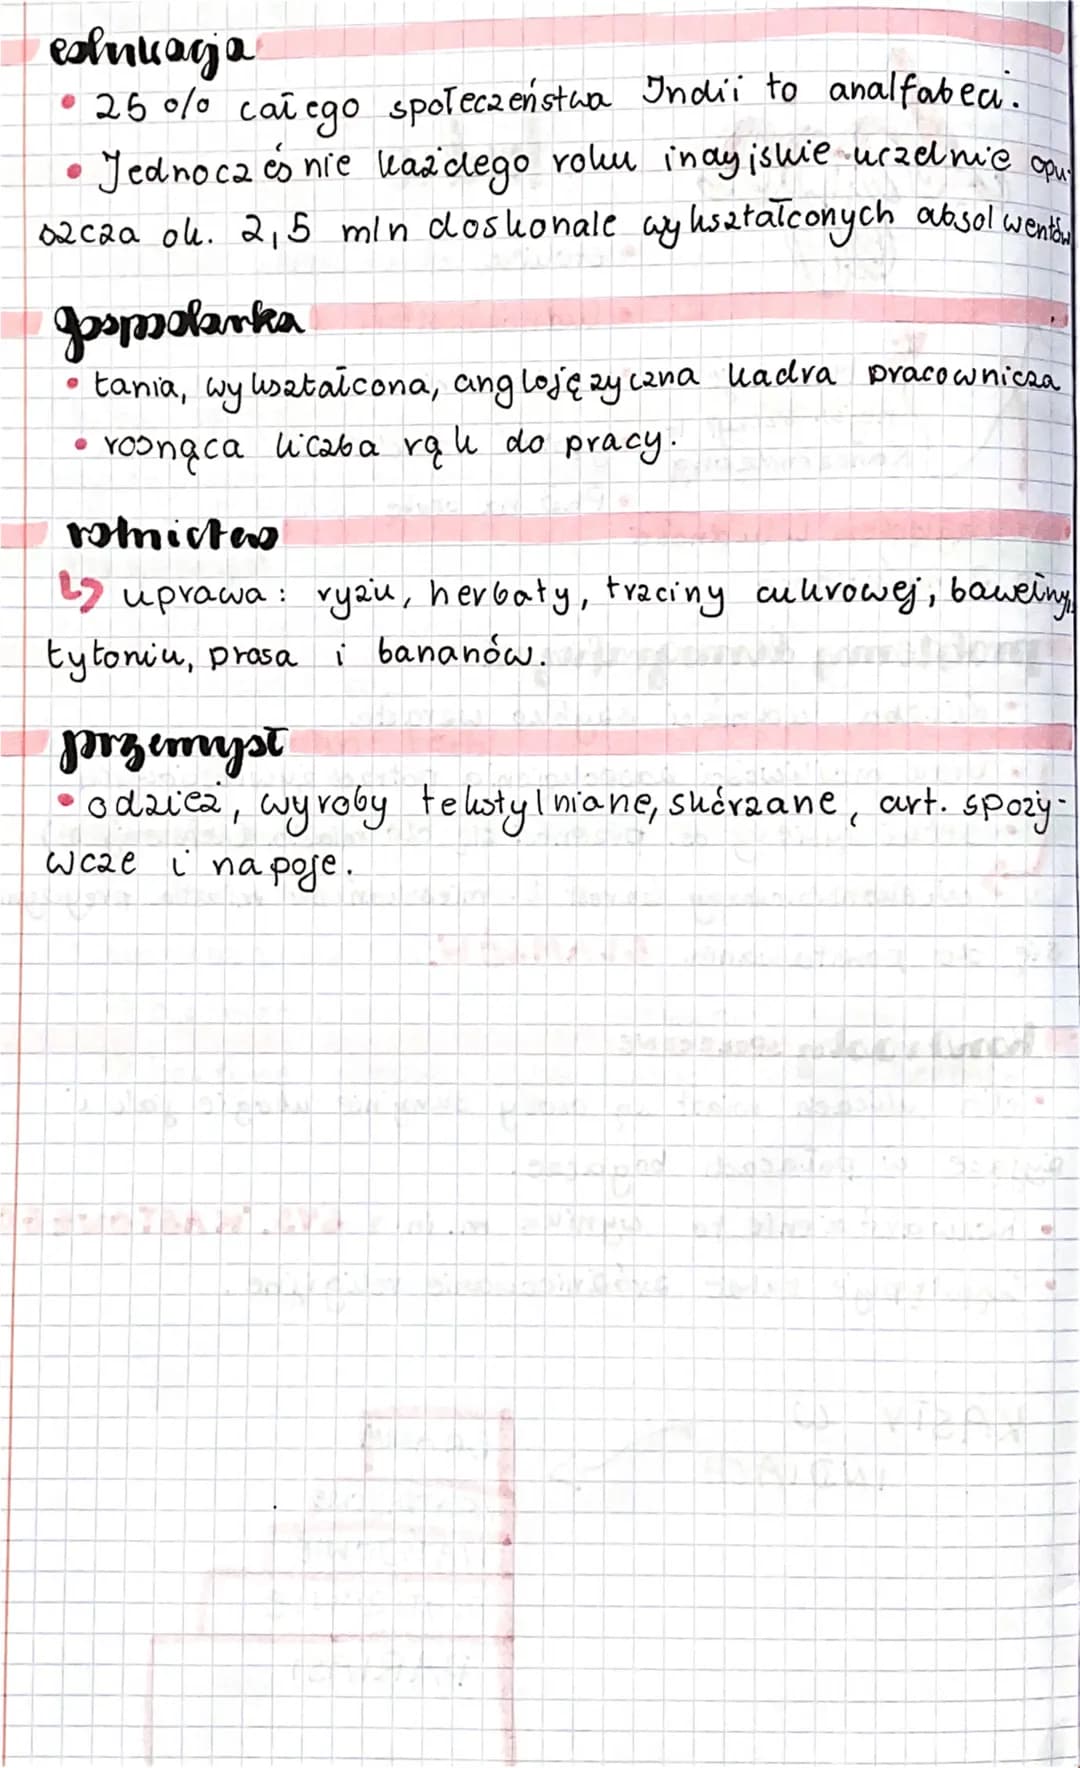 edukacja
• 25 % całego społeczeństwa Indii to analfabeci.
• Jednocześnie każdego roku indyjskie uczelnie opu-
szcza ok. 2,5 mln doskonale wykształconych absolwentów
gospodarka
• tania, wykształcona, anglojęzyczna kadra pracownicza
• rosnąca liczba rąk do pracy.
rolnictwo
↳ uprawa: ryżu, herbaty, trzciny cukrowej, bawełny,
tytoniu, prosa i bananów.
przemysł
• odzież, wyroby tekstylniane, skórzane, art. spoży-
wcze i napoje.